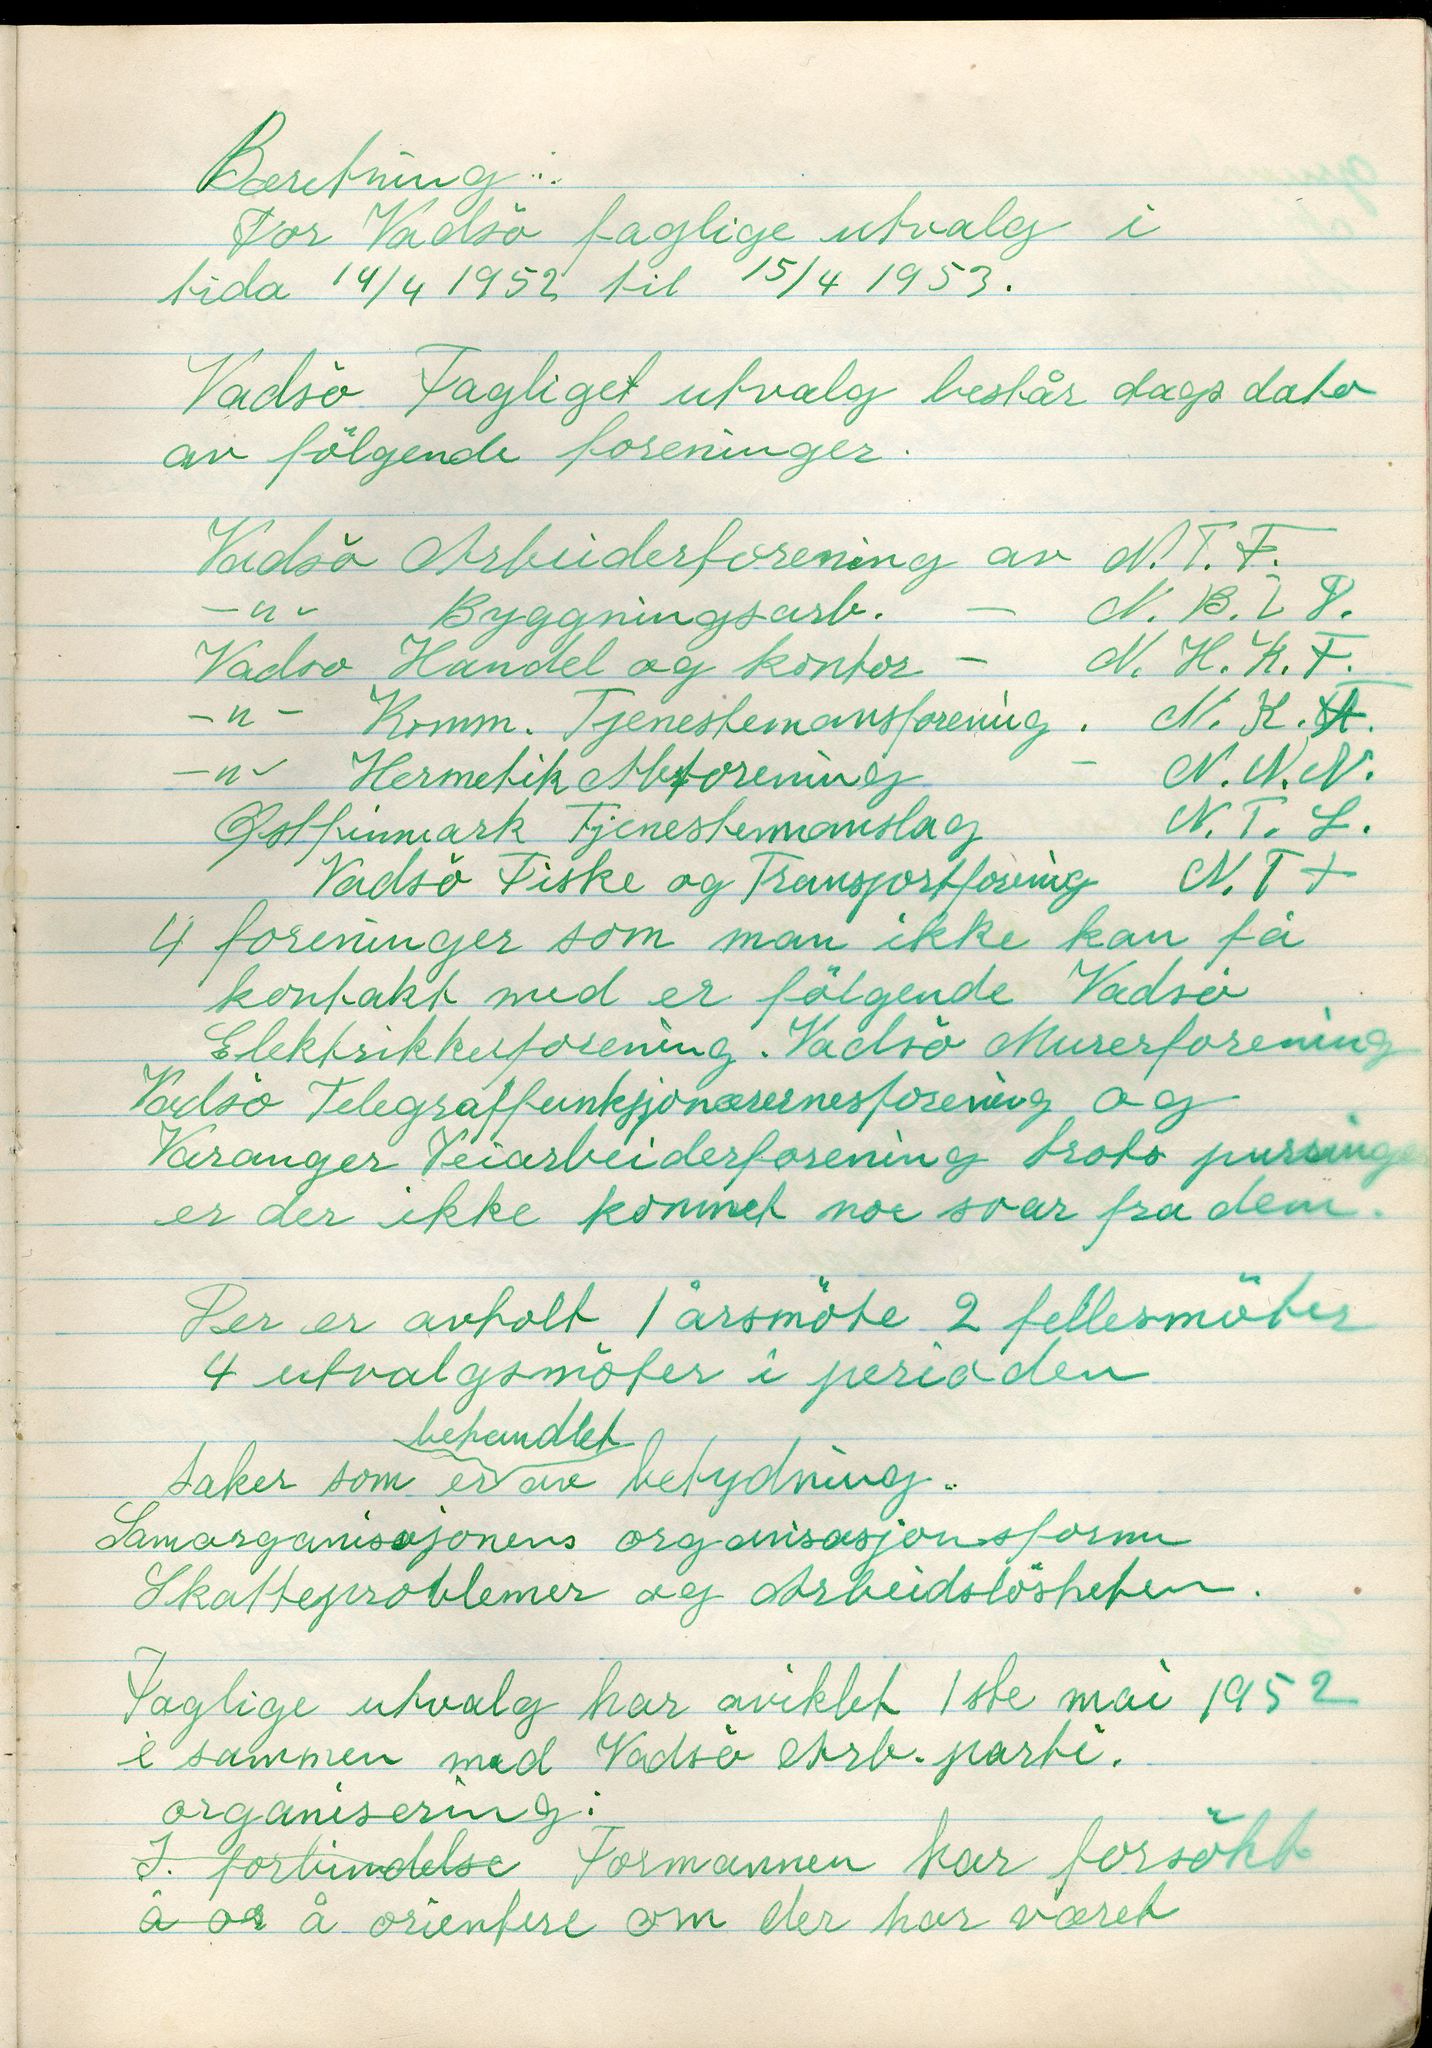 Beretning:
For Vadsö faglige utvalg i
tida 14/4 1952 til 15/4 1953.
Vadsö Fagliget utvalg består dags dato
av fölgende foreninger.
Vadsö Arbeiderforening av N.T.F.
-"- Byggningsarb. - N.B.I.F.
Vadso Handel og kontor - N.H.K.F.
-"- Komm. Tjenestemansforening. N.K.F.
-"- Hermetik Arbforening - N.N.N.
Østfinmark Tjenestemanslag N.T.L.
Vadsö Fiske og Transportforening N.T.F
4 foreninger som man ikke kan få
kontakt med er fölgende Vadsö
Elektrikkerforening. Vadsö Murerforening
Vadsö Telegraffunksjonærernesforening og
Varanger Veiarbeiderforening trots purringer
er der ikke kommet noe svar fra dem.
Der er avholt 1 årsmöte 2 fellesmöter
4 utvalgsmöter i perioden
behandlet
saker som er av betydning.
Samorganisasjonens organisasjonsform
Skatteproblemer og Arbeidslösheten.
Faglige utvalg har aviklet 1ste mai 1952
i sammen med Vadsö Arb. parti.
organisering:
I. forbindelse Formannen har forsökt
å or å orientere om der har været